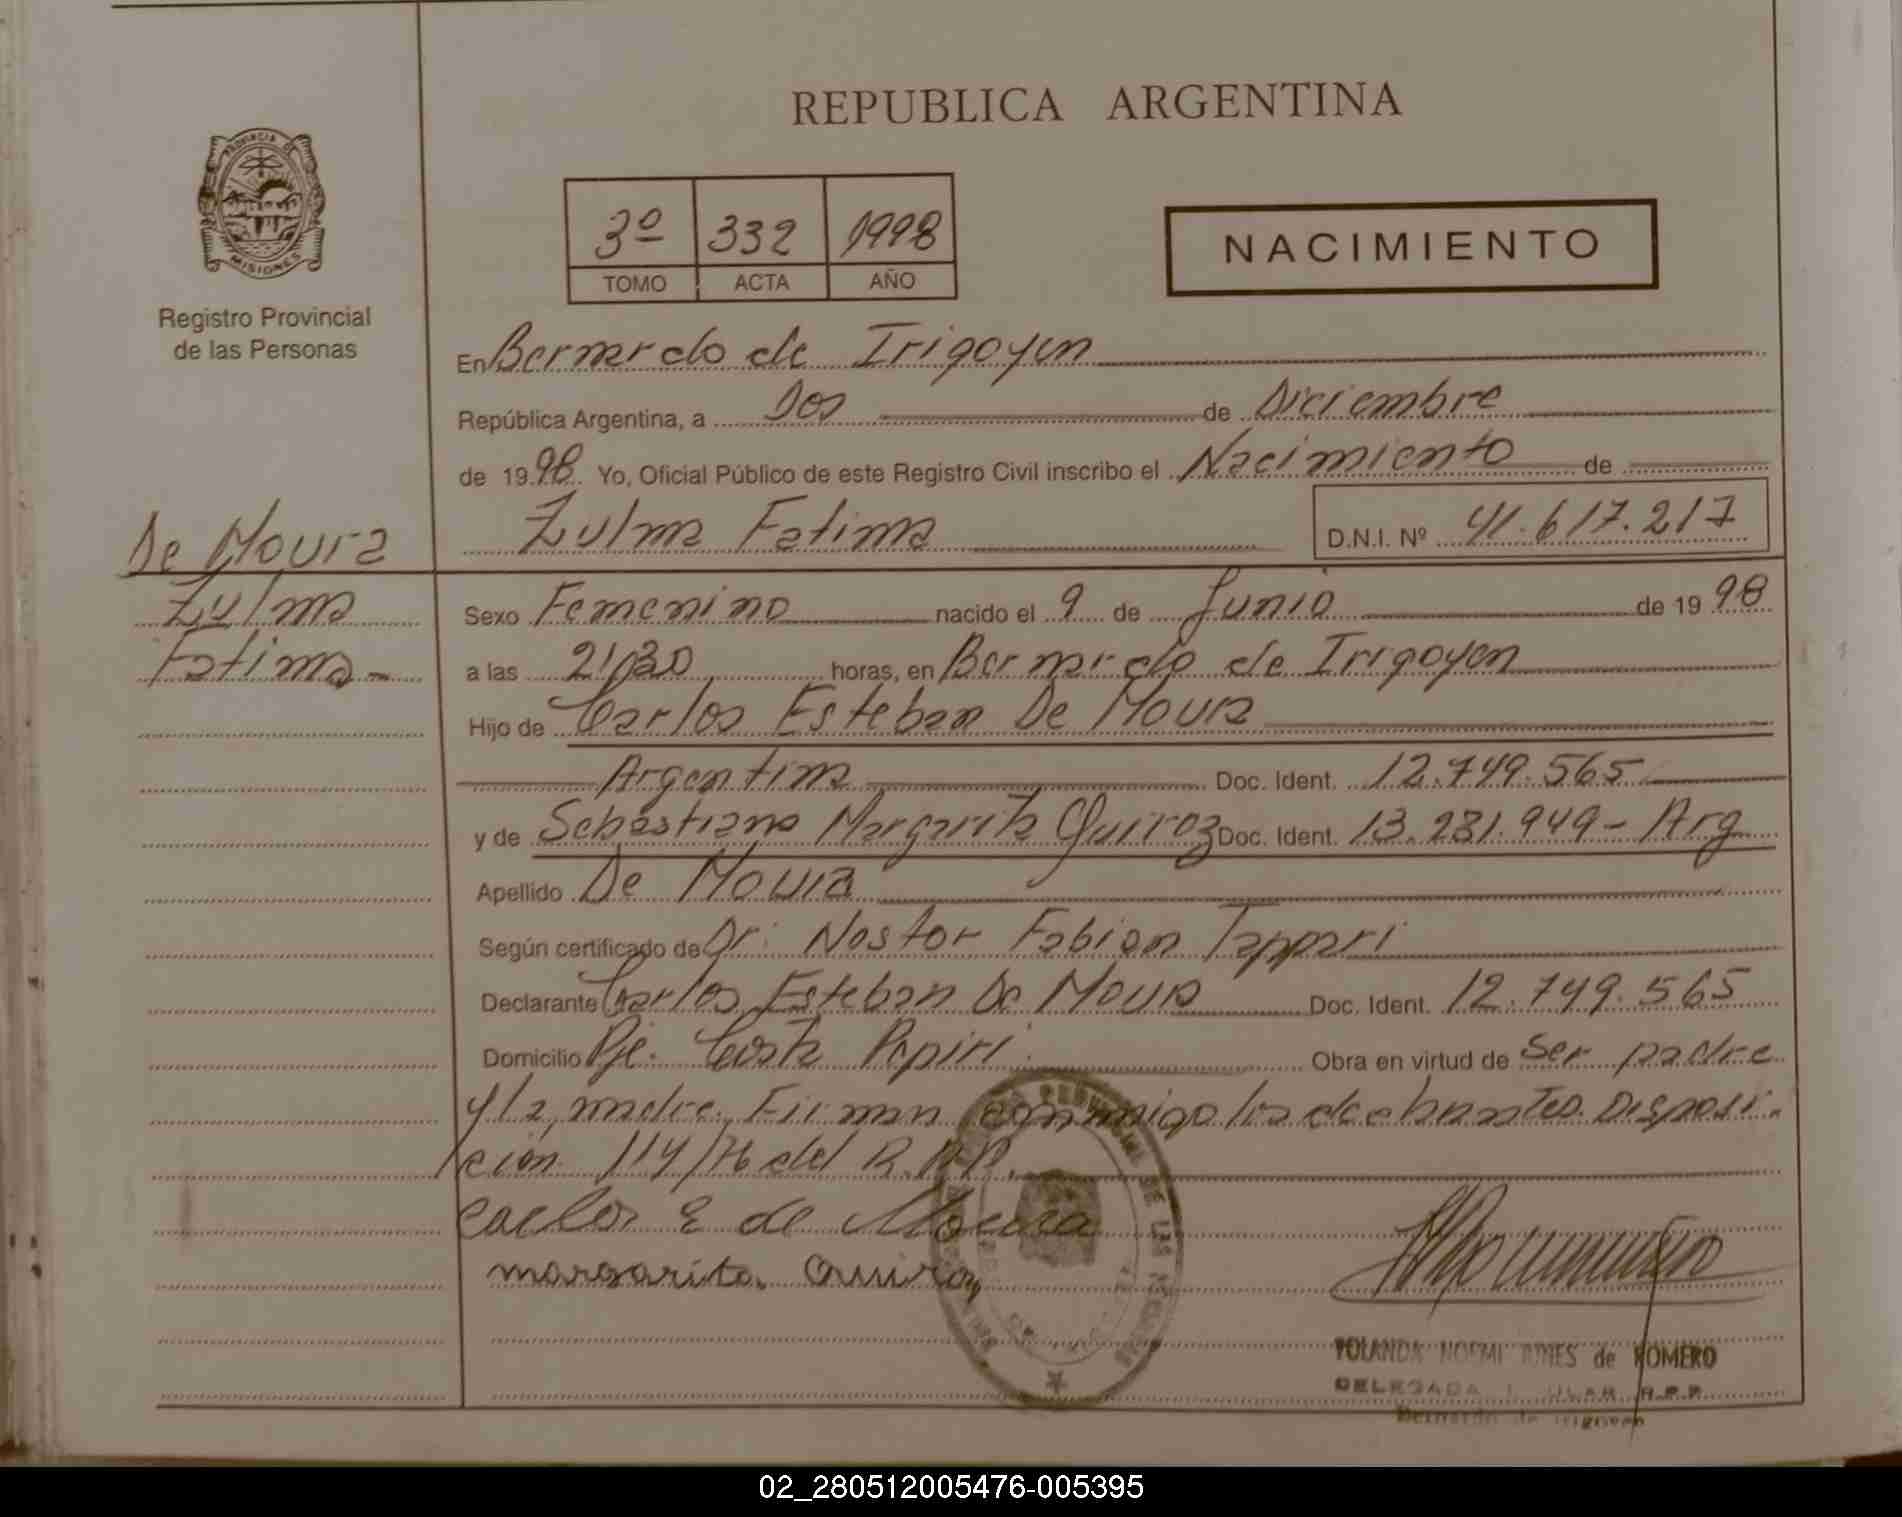 REPUBLICA ARGENTINA
PROVINCIA DE
MISIONES
Registro Provincial
de las Personas
3º 332 1998
TOMO ACTA AÑO
NACIMIENTO
En Bernardo de Irigoyen
República Argentina, a Dos de Diciembre
de 1998 Yo, Oficial Público de este Registro Civil inscribo el Nacimiento de
De Moura
Zulma Fatima D.N.I. Nº 41.617.217
Zulma
Fatima-
Sexo Femenino nacido el 9 de Junio de 1998
a las 21,30 horas, en Bernardo de Irigoyen
Hijo de Carlos Esteban De Moura
Argentina Doc. Ident. 12.749.565
y de Sebastiana Margarita Quiroz Doc. Ident. 13.281.949- Arg
Apellido De Moura
Según certificado de Dr: Nestor Fabian Tappari
Declarante Carlos Esteban De Moura Doc. Ident. 12.749.565
Domicilio Pje. Costa Pepiri. Obra en virtud de Ser padre
y la madre. Firman conmigo los Disposi
cion 114/76 del R.P.P.
Carlos E de Moura
margarita Quiroz
YOLANDA NOEMI de ROMERO
DELEGADA R.P.P.
Bernardo de Irigoyen
02_280512005476-005395